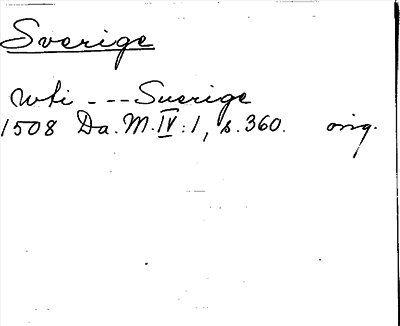 Sverige
wti - - - Suerige
1508 Da. M. IV:1, s. 360. orig.